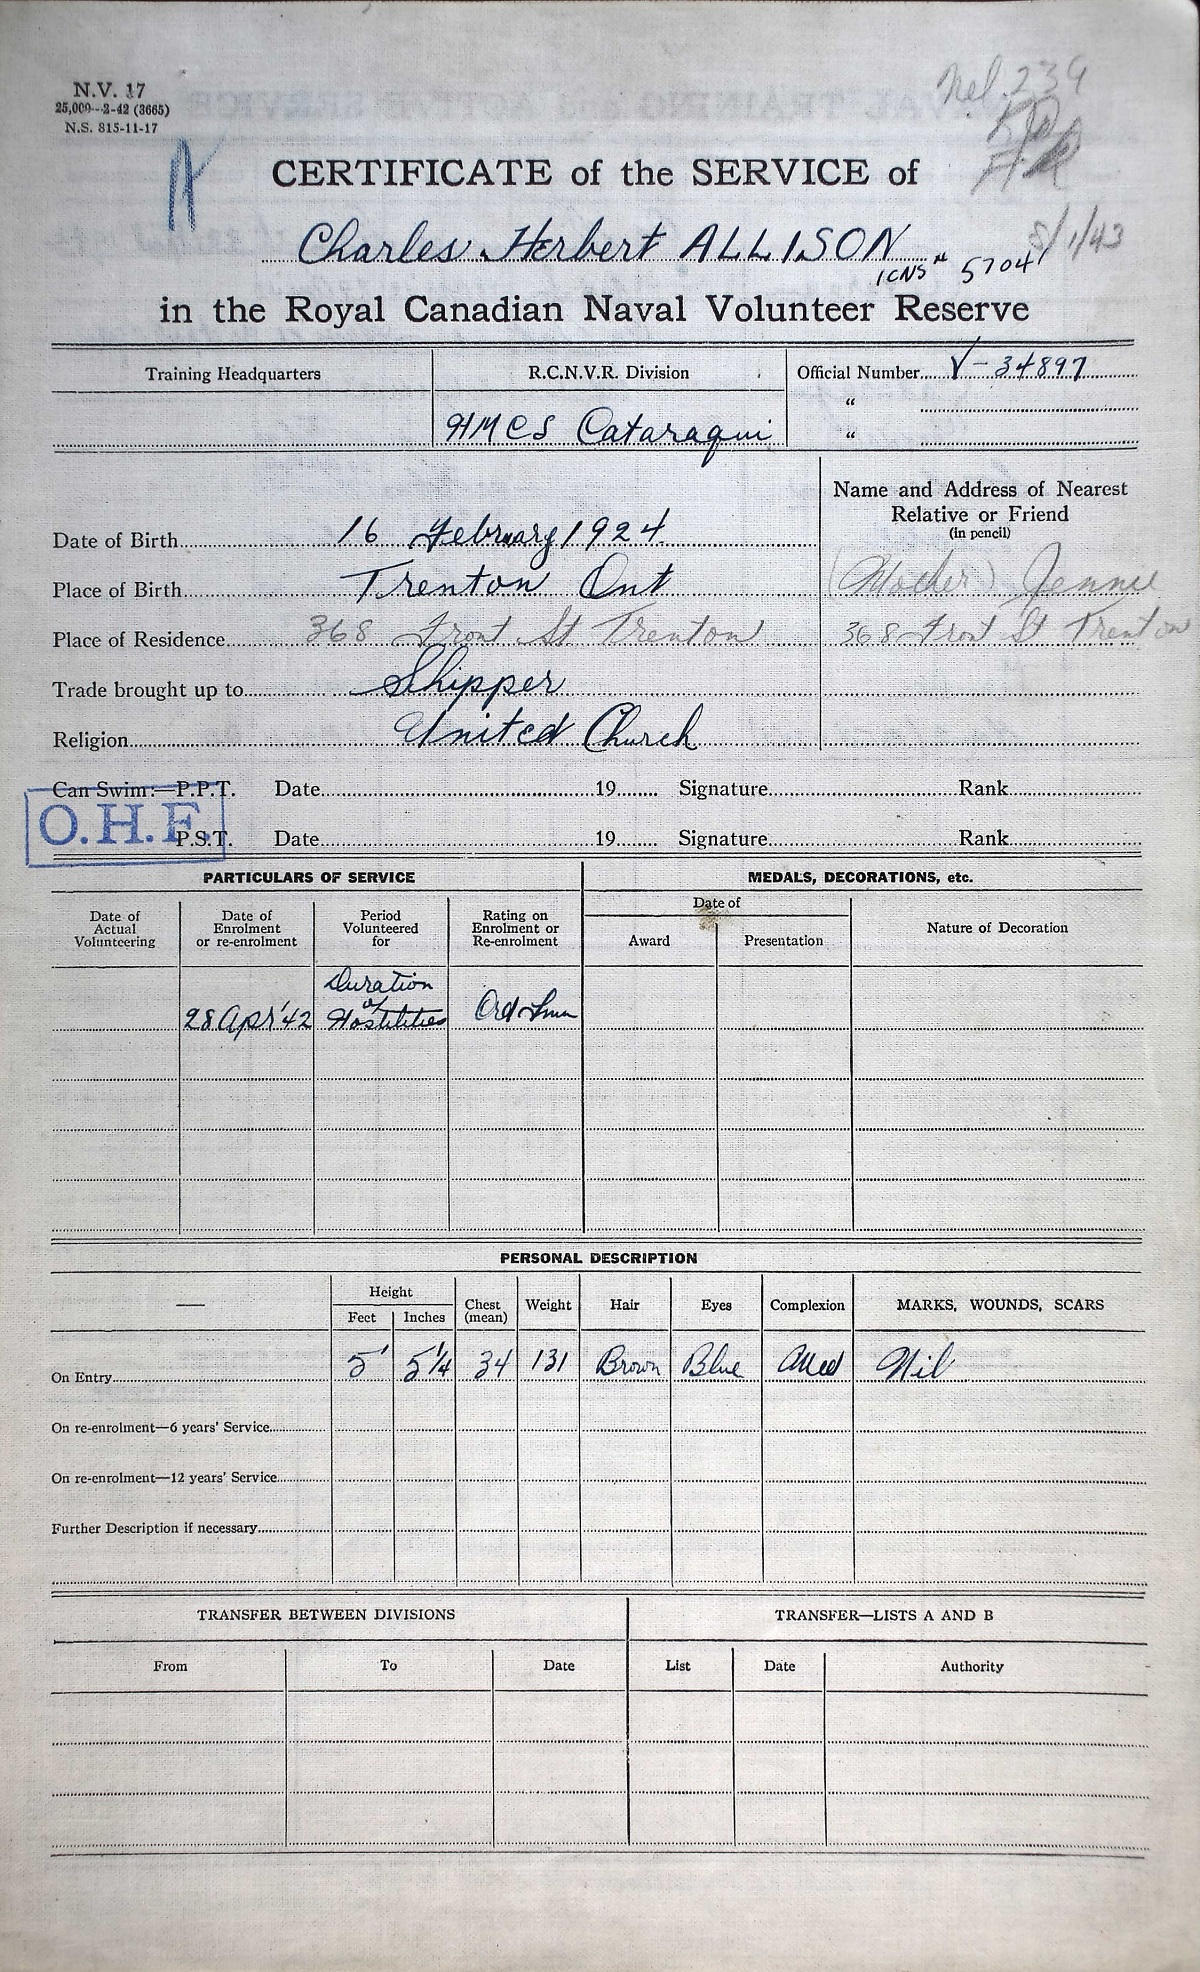 N.V. 17
25,000--2-42 (3665)
N.S. 815-11-17
Nel. 239
CERTIFICATE of the SERVICE of
Charles Herbert ALLISON
8/1/43
ICNS # 5704
in the Royal Canadian Naval Volunteer Reserve
Training Headquarters R.C.N.V.R. Division Official Number V-34897
"
HMCS Cataraqui "
Name and Address of Nearest
Relative or Friend
(in pencil)
Date of Birth 16 February 1924
Place of Birth Trenton Ont (Mother) Jennie
Place of Residence 368 Front St Trenton 368 Front St Trenton
Trade brought up to Shipper
Religion United Church
Can Swim:—P.P.T. Date 19 Signature Rank
O.H.F.
P.S.T. Date 19 Signature Rank
PARTICULARS OF SERVICE MEDALS, DECORATIONS, etc.
Date of Actual Volunteering Date of Enrolment or re-enrolment Period Volunteered for Rating on Enrolment or Re-enrolment Date of Nature of Decoration
Award Presentation
28 Apr '42 Duration of Hostilities Ord Smn
PERSONAL DESCRIPTION
— Height Chest (mean) Weight Hair Eyes Complexion MARKS, WOUNDS, SCARS
Feet Inches
On Entry 5' 5 1/4 34 131 Brown Blue Med Nil
On re-enrolment—6 years' Service
On re-enrolment—12 years' Service
Further Description if necessary
TRANSFER BETWEEN DIVISIONS TRANSFER—LISTS A AND B
From To Date List Date Authority